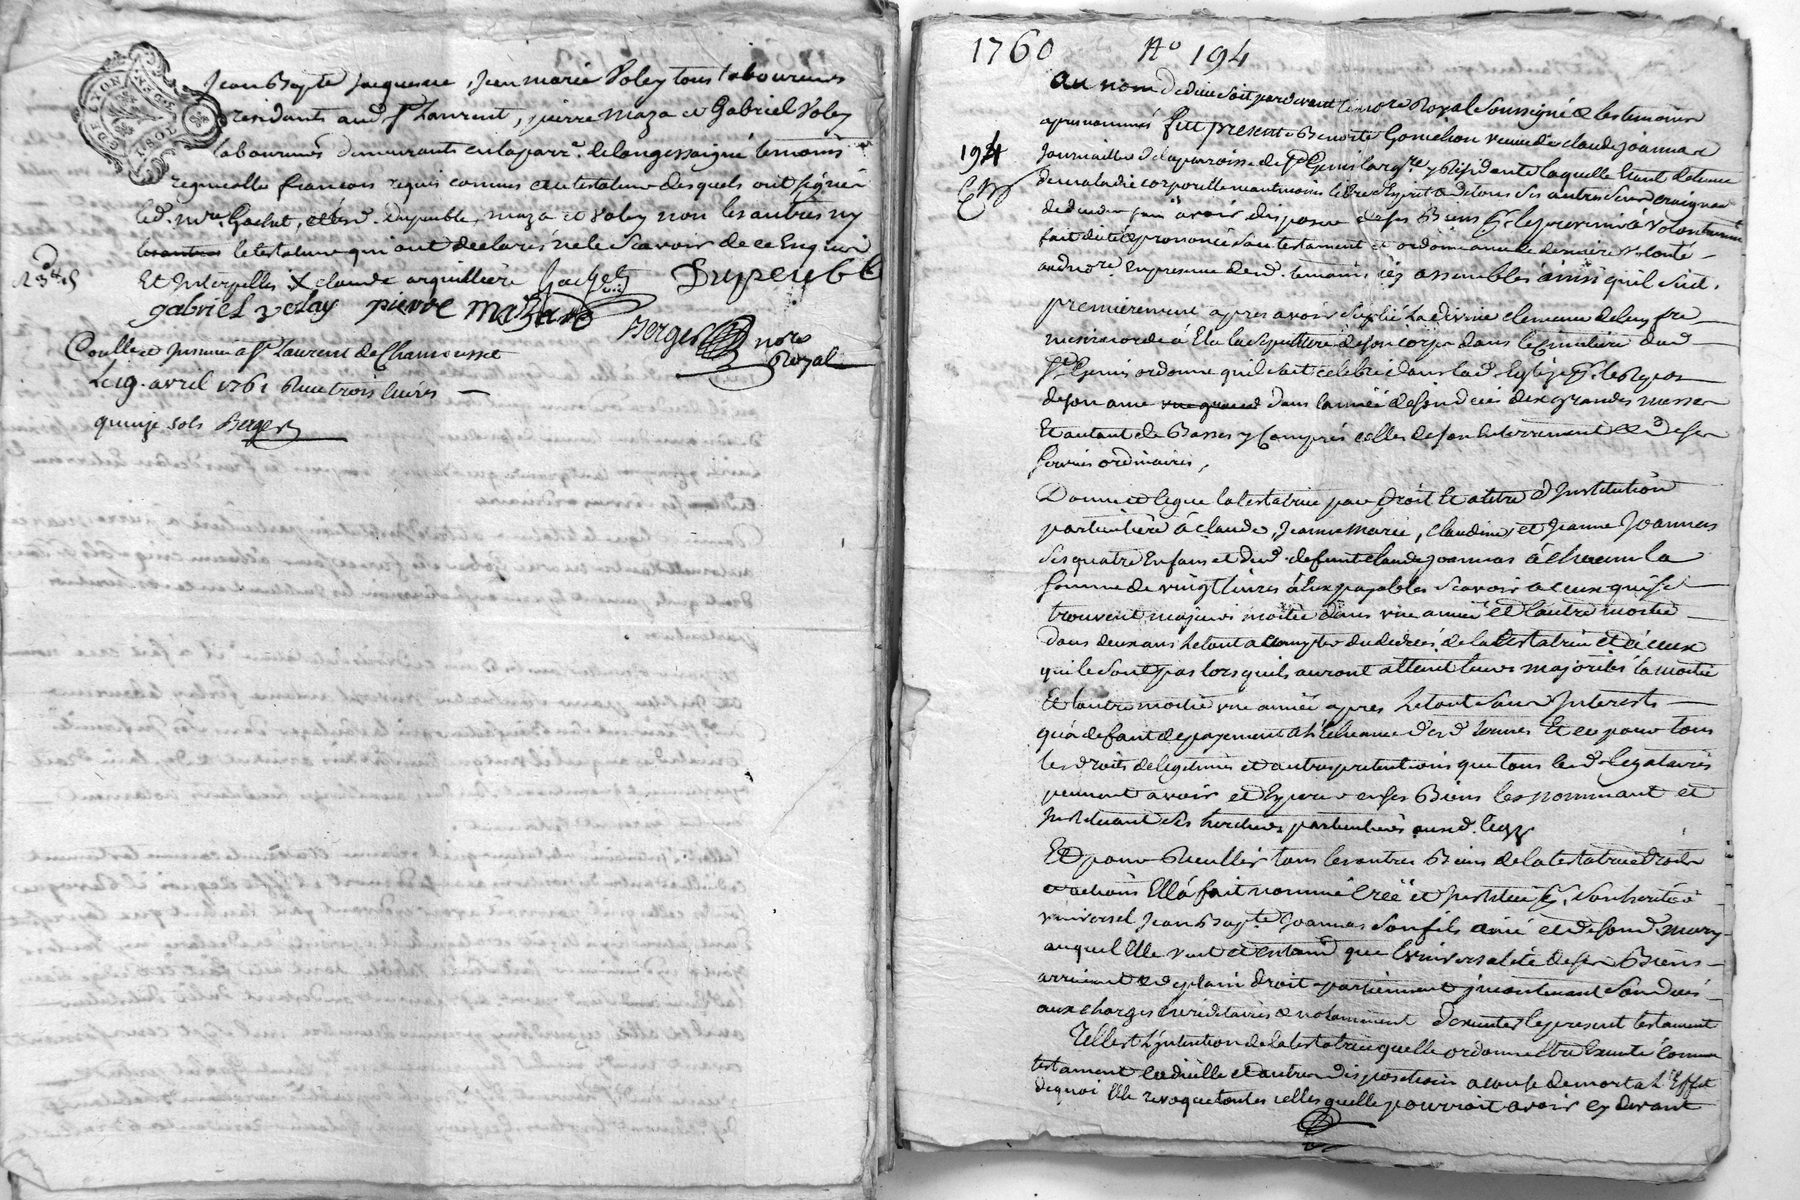 GDE LYON
Jean Bapte Jacqueme, Jean marie Voley tous laboureurs
residants aud St Laurent, pierre maza et Gabriel Voley
laboureurs demeurants en laparr.e de longessaigne temoins
regnicolles francois requis comme au testateur desquels ont signé
led. mre Gachet, et lesd. dupeuble, maza et Voley non les autres ny
le testateur qui ont declarés ne le Scavoir de ce Enquis
Et Interpellés X claude arquilliere Gachet Dupeuble
gabriel volay pierre maza
Berger nore
Royal
Conllé et Insinué a St Laurent de Chamousset
Le 19. avril 1761 Reçu trois livres
quinze sols Berger
1760 No 194
au nom de dieu Soit pardevant le nore Royal Soussigné & les temoins
194
apres nommés fut presente Benoite Gonichon veuve de claude joannas
journallier de la parroisse de St Genis largre y Residante laquelle Etant detenue
de maladie corporelle neantmoins libre d'Esprit et de tous Ses autres Sens craignant
de deceder Sans avoir disposé de Ses Biens
fait dicté & prononcé Son testament et ordonnance de derniere volonté
aud nore En presence desd. temoins icy assemblés ainsi quil Suit.
premierement apres avoir Suplié La divine clemence de luy fre
misericorde à Elu la Sepulture de Son corps dans le Cimetiere dud
St Genis ordonne quil Soit celebré dans lad. Eglise pr. le Repos
de Son ame dans l'année de Son deceds dix grandes messes
Et autant de Basses y Compris celles de Son Enterrement & de Ses
Services ordinaires,
Donne et legue la testatrice par Droit Et atitre d'Institution
particuliere à claude, Jeanne Marie, Claudine, et Jeanne Joannas
Ses quatre Enfans et dud. defunt claude joannas à chacun la
Somme de vingt livres à Eux payables Scavoir a ceux qui se
trouvent majeurs moitié dans une année et l'autre moitié
dans deux ans Le tout a Compter du deceds de la testatrice et à ceux
qui le Sont pas lors quils auront atteint leurs majorités la moitié
Et l'autre moitié une année apres Le tout Sans Interests
qu'a defaut de payement à l'Echeance desd. termes Et ce pour tous
les droits de legitimes et autres pretentions que tous lesd. legataires
peuvent avoir et Esperer en Ses Biens les nommant et
Instituant Ses heritiers particuliers auxd. legs
Et pour Recueillir tous les autres Biens de la testatrice droits
et actions Elle à fait nommé créé et Institué pr. Son heritier
universel Jean Bapte Joannas Son fils ainé et de Sond. mary
auquel Elle veut et entend que l'universalité de Ses Biens
arrivent & de plain droit apartiennent jncontinent Son deces
aux charges hereditaires & notamment d'executer le present testament
Telle est L'intention de la testatrice quelle ordonne Etre Executé comme
testament codicille et autre disposition a cause de mort a L'Effet
de quoi Elle revoque toutes celles quelle pourroit avoir cy devant